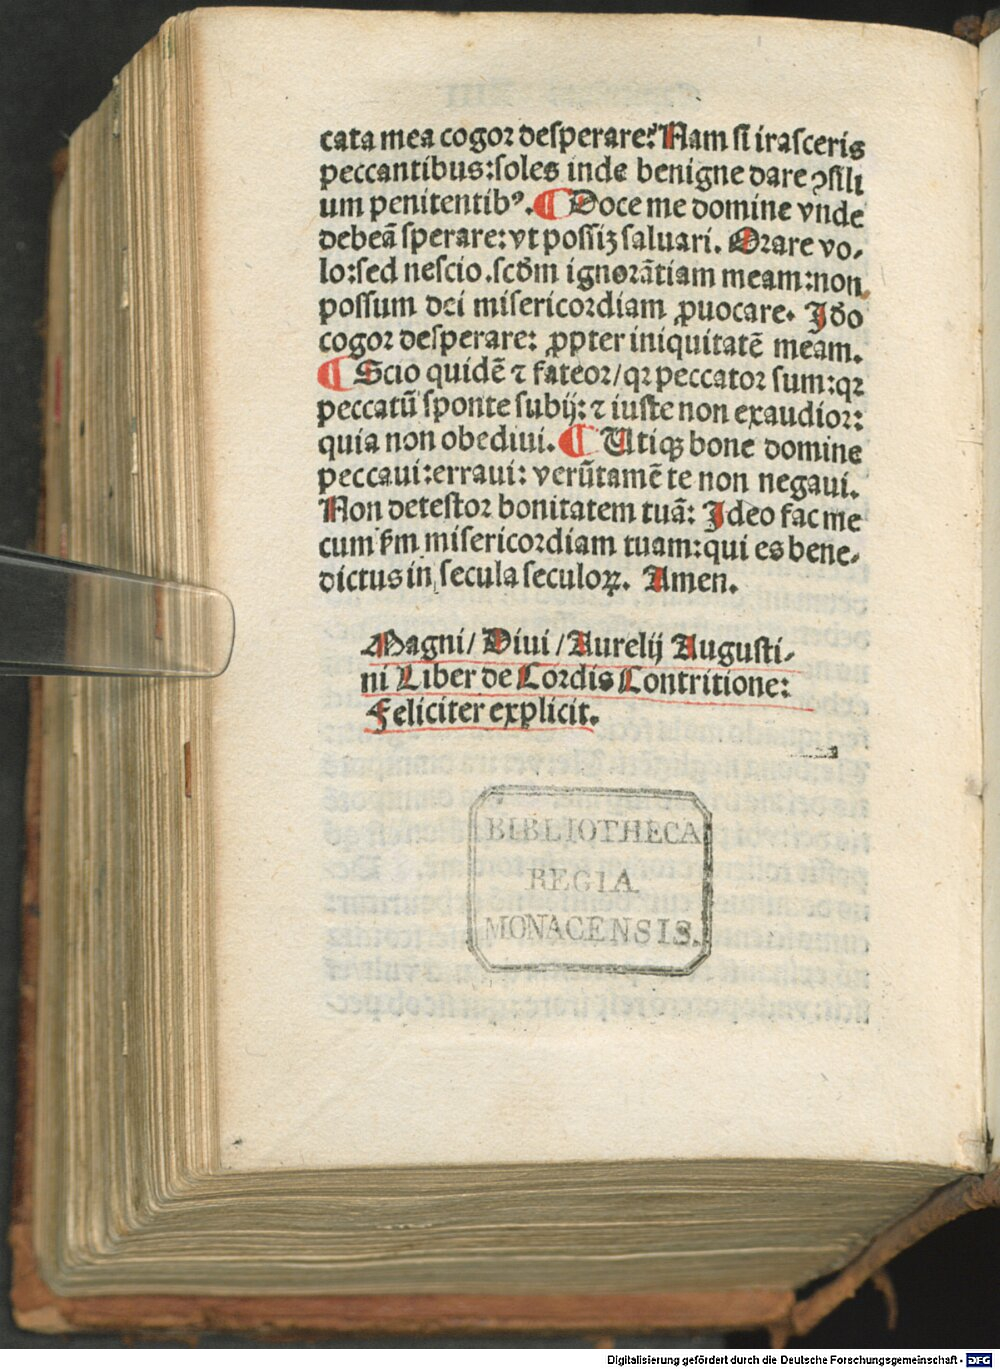 cata mea cogoꝛ deſperare? Nam ſi iraſceris
peccantibus: ſoles inde benigne dare ꝯſili
um penitentibꝰ. ¶ Doce me domine vnde
debeā ſperare: vt poſſiꝫ ſaluari. Oꝛare vo⸗
lo: ſed neſcio. ſcd̄m ignoꝛātiam meam: non
poſſum dei miſericoꝛdiam ꝓuocare. Jd̄o
cogoꝛ deſperare: ꝓpter iniquitatē meam.
¶ Scio quidē ⁊ fateoꝛ/ qꝛ peccatoꝛ ſum: qꝛ
peccatū ſponte ſubij: ⁊ iuſte non exaudioꝛ:
quia non obediui. ¶ Utiqꝫ bone domine
peccaui: erraui: verūtamē te non negaui.
Non deteſtoꝛ bonitatem tuā: Jdeo fac me
cum ẜm miſericoꝛdiam tuam: qui es bene⸗
dictus in ſecula ſeculoꝝ. Amen.
Magni/ Diui/ Aurelij Auguſti⸗
ni Liber de Coꝛdis Contritione:
Feliciter explicit.
BIBLIOTHECA
REGIA
MONACENSIS.
Digitalisierung gefördert durch die Deutsche Forschungsgemeinschaft - DFG